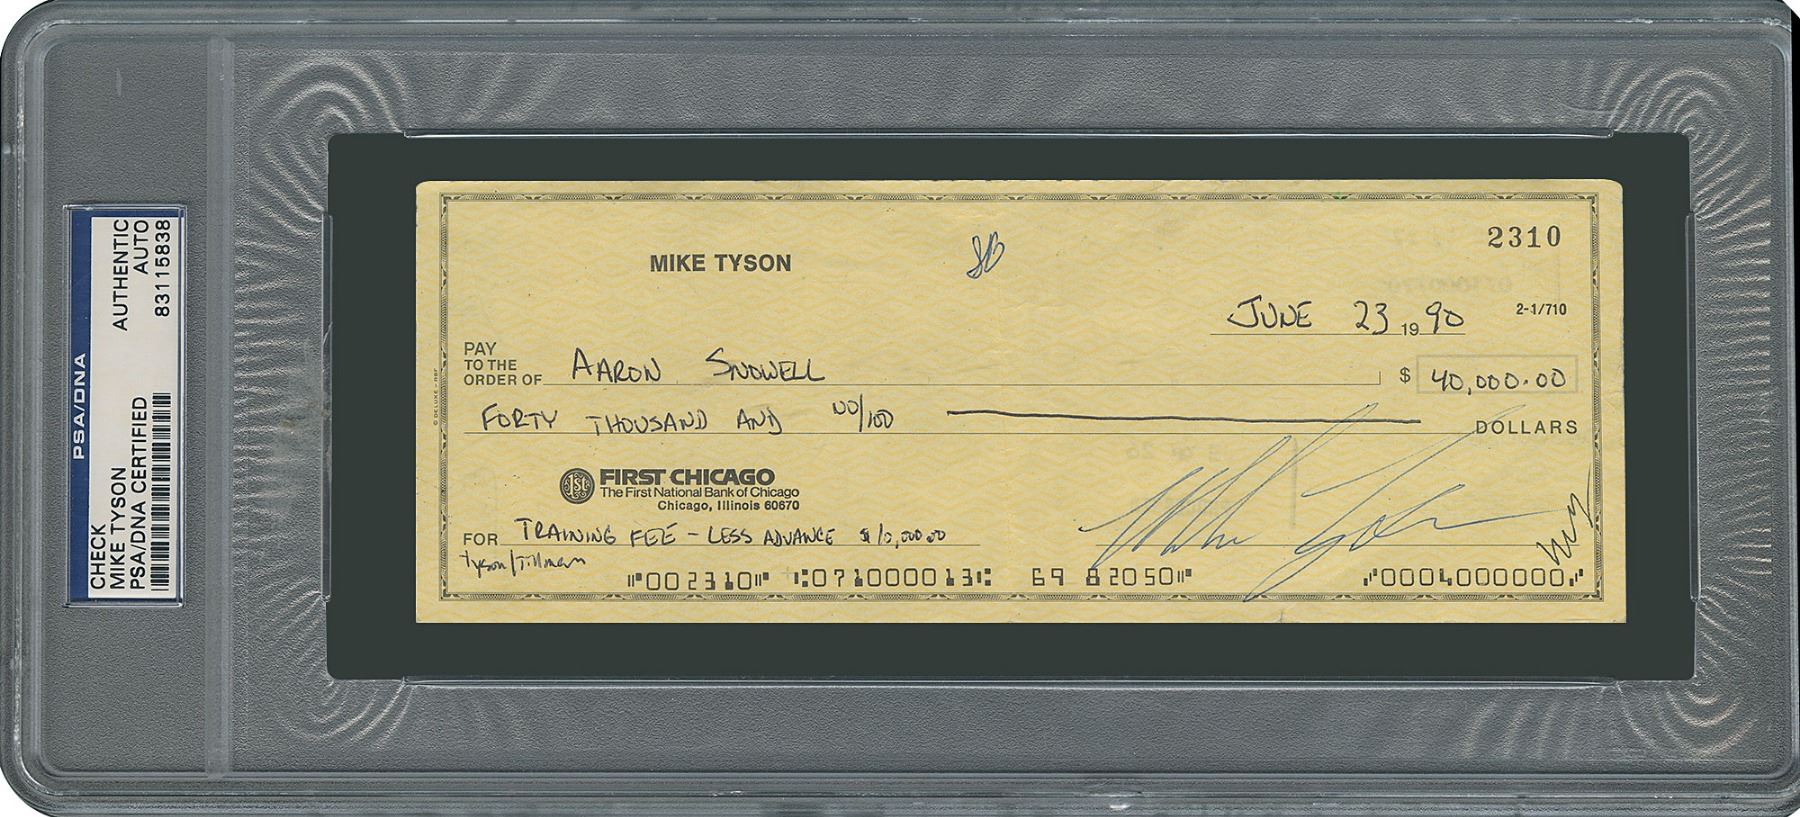 PSA/DNA
CHECK
MIKE TYSON
PSA/DNA CERTIFIED
AUTHENTIC
AUTO
83115838
2310
MIKE TYSON
JUNE 23 19 90
2-1/710
PAY
TO THE
ORDER OF AARON SNOWELL $ 40,000.00
FORTY THOUSAND AND NO/100 DOLLARS
1st FIRST CHICAGO
The First National Bank of Chicago
Chicago, Illinois 60670
FOR TRAINING FEE - LESS ADVANCE $10,000.00
Tyson/Tillman
Mike Tyson
⑈002310⑈ ⑆071000013⑆ 69 82050⑈ ⑈0004000000⑈